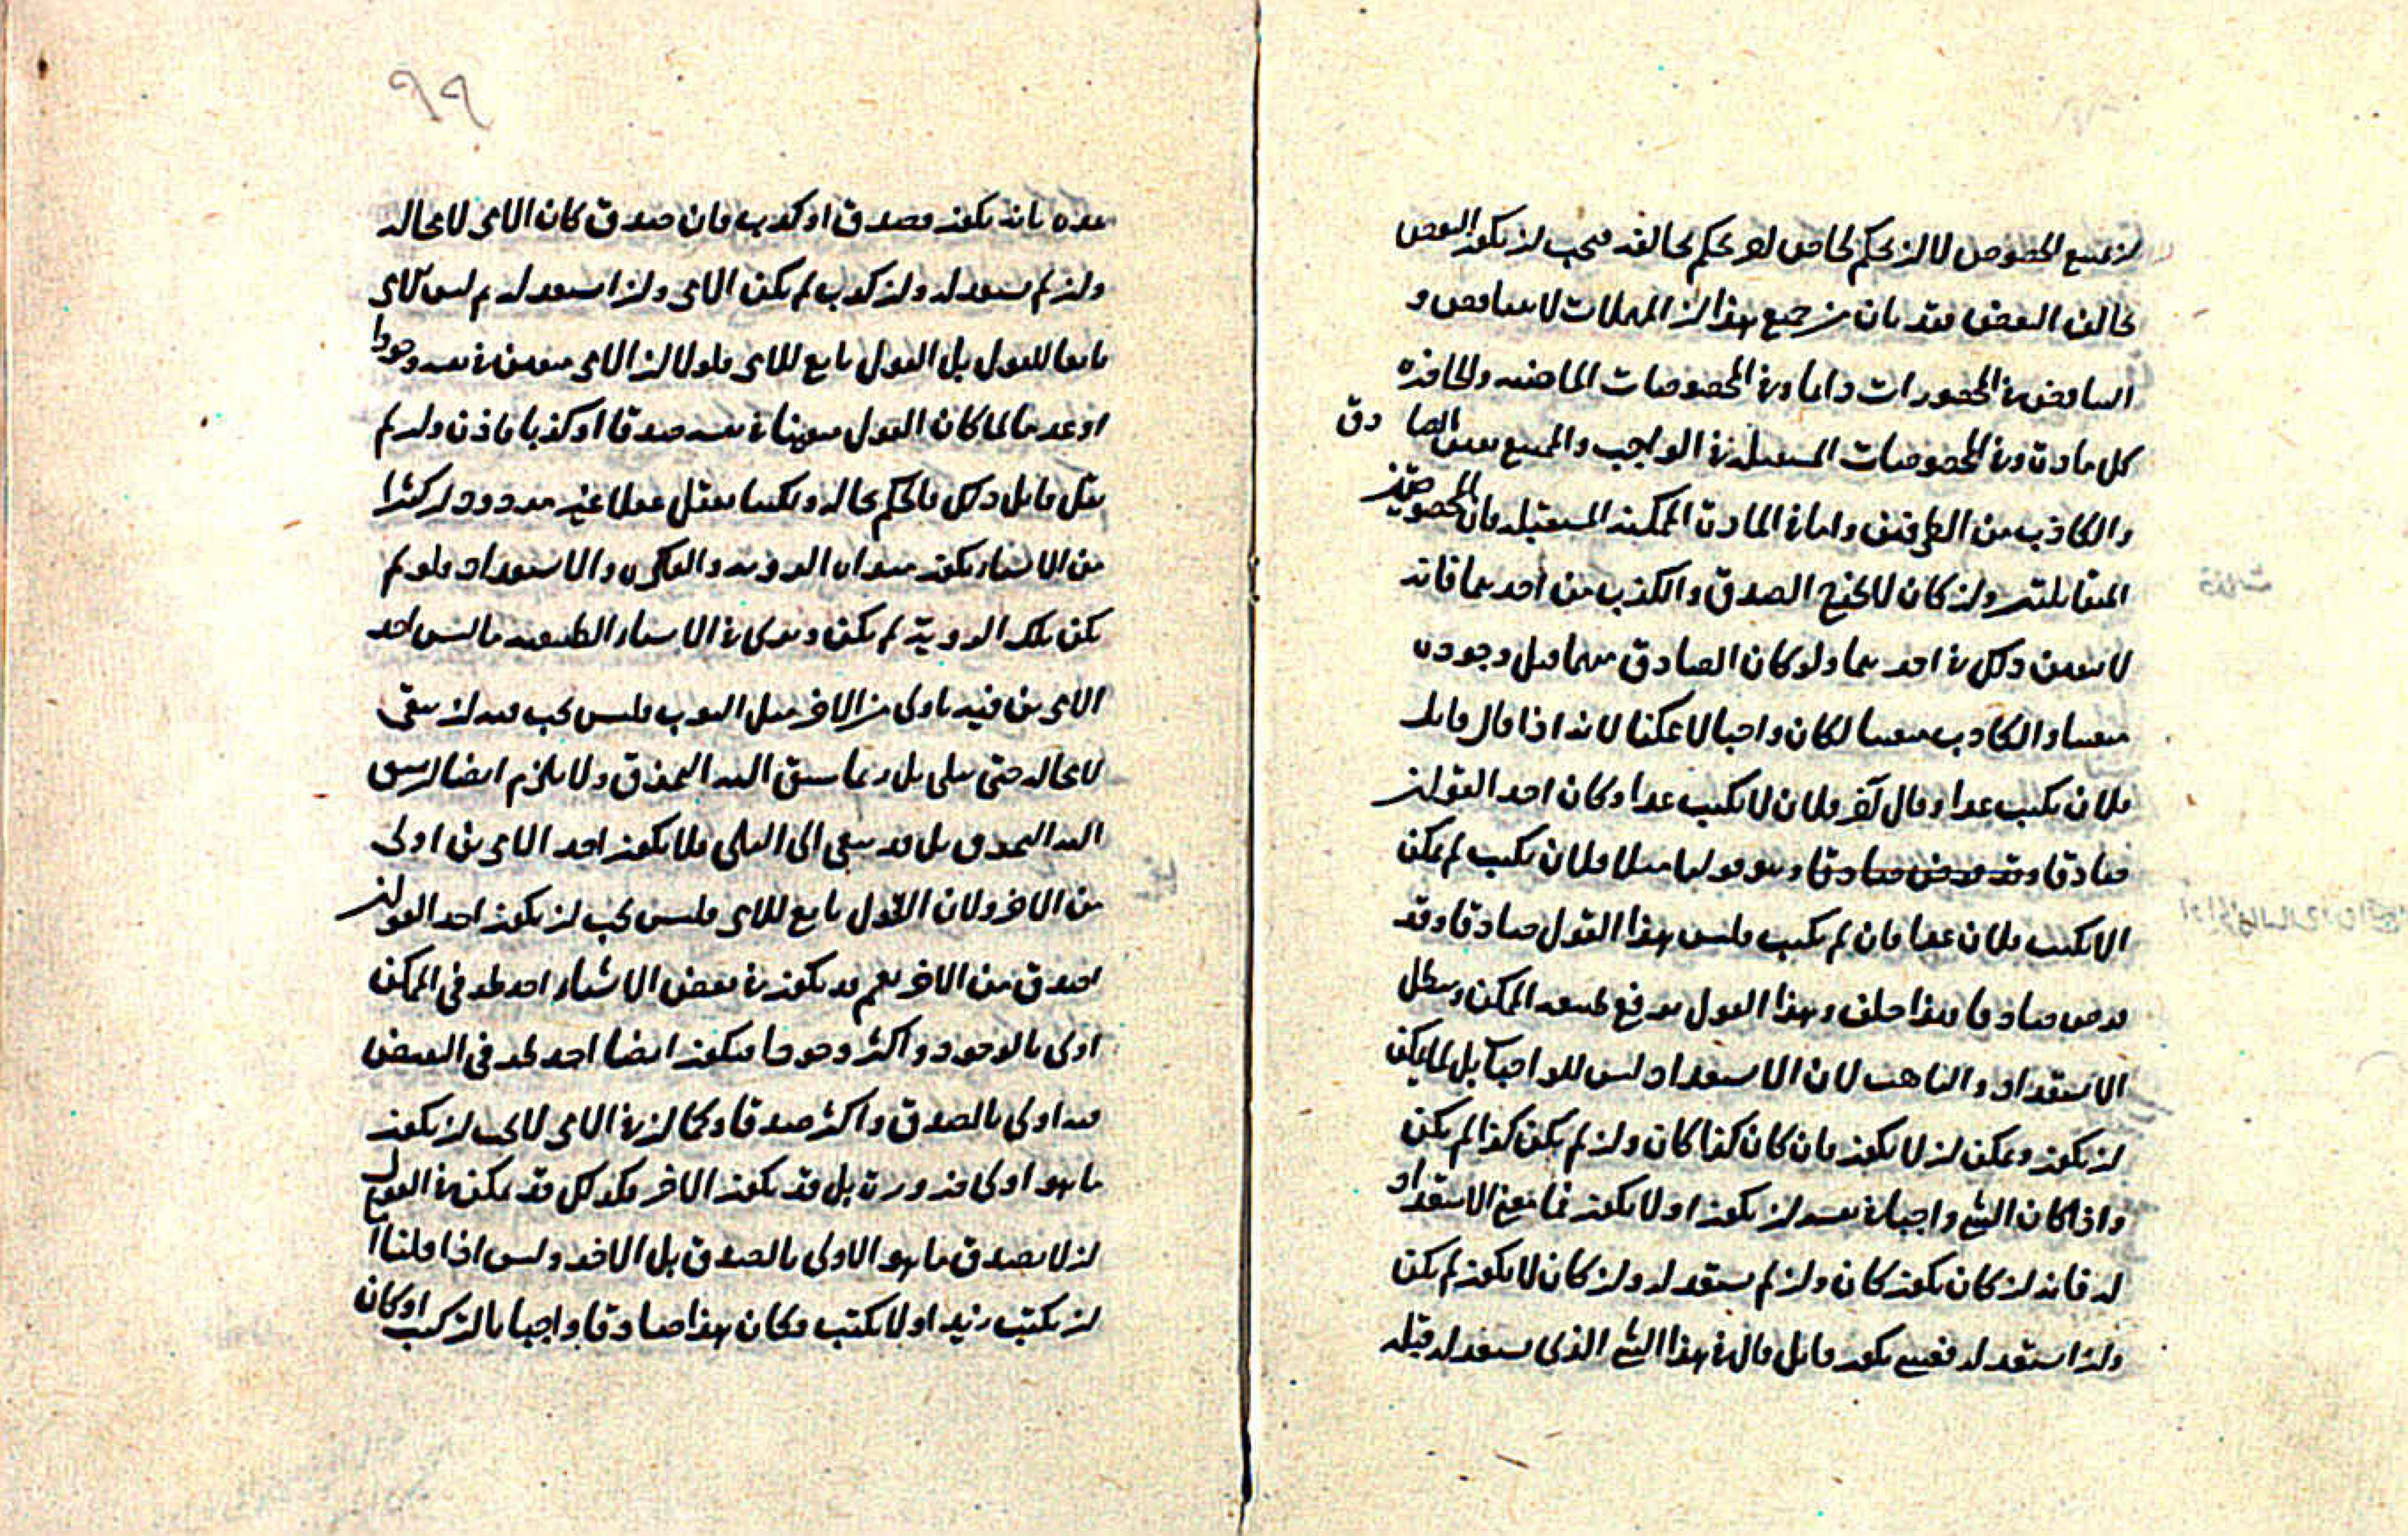 لا لان يحكم لحاص يحكم يحالفه فيجب ان يكون البعض
يخالف البعض فقد بان من جميع هذا ان المهملات لا يتناقض و
التناقض في المحصورات دايما وفي المخصوصات الماضيه والحاضره
كل مادة وفي المخصوصات المستقبله في الواجب والممتنع يعين الصادق
والكاذب من الطرفين واما في المادة الممكنه المستقبله فان المخصوصتين
المتقابلتين وان كان لا يخرج الصدق والكذب من احدهما فانه
لا يتعين ذلك في احدهما ولو كان الصادق منهما قبل وجوده
متعينا والكاذب متعينا لكان واجبا لا ممكنا لانه اذا قال قايل
فلان يكتب غدا وقال آخر فلان لا يكتب غدا وكان احد القولين
صادقا وقد فرض صادقا وهو قولنا مثلا فلان يكتب لم يمكن
الا يكتب فلان غدا فان لم يكتب فليس هذا القول صادقا وقد
فرض صادقا هذا خلف وهذا القول يرفع طبيعه الممكن ويبطل
الاستعداد والتاهب لان الاستعداد ليس للواجبات بل لما يمكن
ان يكون ويمكن ان لا يكون فان كان كذا كان وان لم يكن كذا لم يكن
واذا كان الشئ واجبا في نفسه ان يكون او لا يكون فما معنى الاستعداد
له فانه ان كان يكون كان وان لم يستعد له وان كان لا يكون لم يكن
وان استعد له يكون قايل قال في هذا الشئ الذى يستعد له قبله
٩٩
بانه يكون فصدق او كذب فان صدق كان الامر لا محاله
وان لم يستعد له وان كذب لم يكن الامر وان استعد له ثم ليس الامر
تابعا للقول بل القول تابع للامر فلولا ان الامر متعين في نفسه وجودا
او عدما لما كان القول متعينا في نفسه صدقا او كذبا فاذن ولو لم
يقل قايل ذلك فالحكم بحاله ولكنا نعقل عقلا غير مردود ان كثيرا
من الاشياء يكون الرويه والفكره والاستعداد فلو لم
يكن تلك الروية لم يكن ونرى في الاشياء الطبيعيه ما ليس احد
الامرين فيه باولى من الاخر مثل الثوب فليس يجب فيه ان يبقى
لا محاله حتى يبلى بل ربما سبق اليه التمزق ولا يلزم ايضا ان يسبق
اليه التمزق بل قد يبقى الى البلى فلا يكون احد الامرين اولى
من الاخر ولان القول تابع للامر فليس يجب ان يكون احد القولين
اصدق من الاخر نعم قد يكون في بعض الاشياء احد طرفى الممكن
اولى بالوجود واكثر وجودا فيكون ايضا احد طرفى النقيض
فيه اولى بالصدق واكثر صدقا وكما ان في الامر لا يجب ان يكون
ما هو اولى ضرورة بل قد يكون الاخر فكذلك قد يمكن في القول
ان لا يصدق ما هو الاولى بالصدق بل الاخر وليس اذا قلنا
ان يكتب زيد او لا يكتب فكان هذا صادقا واجبا يكتب او كان